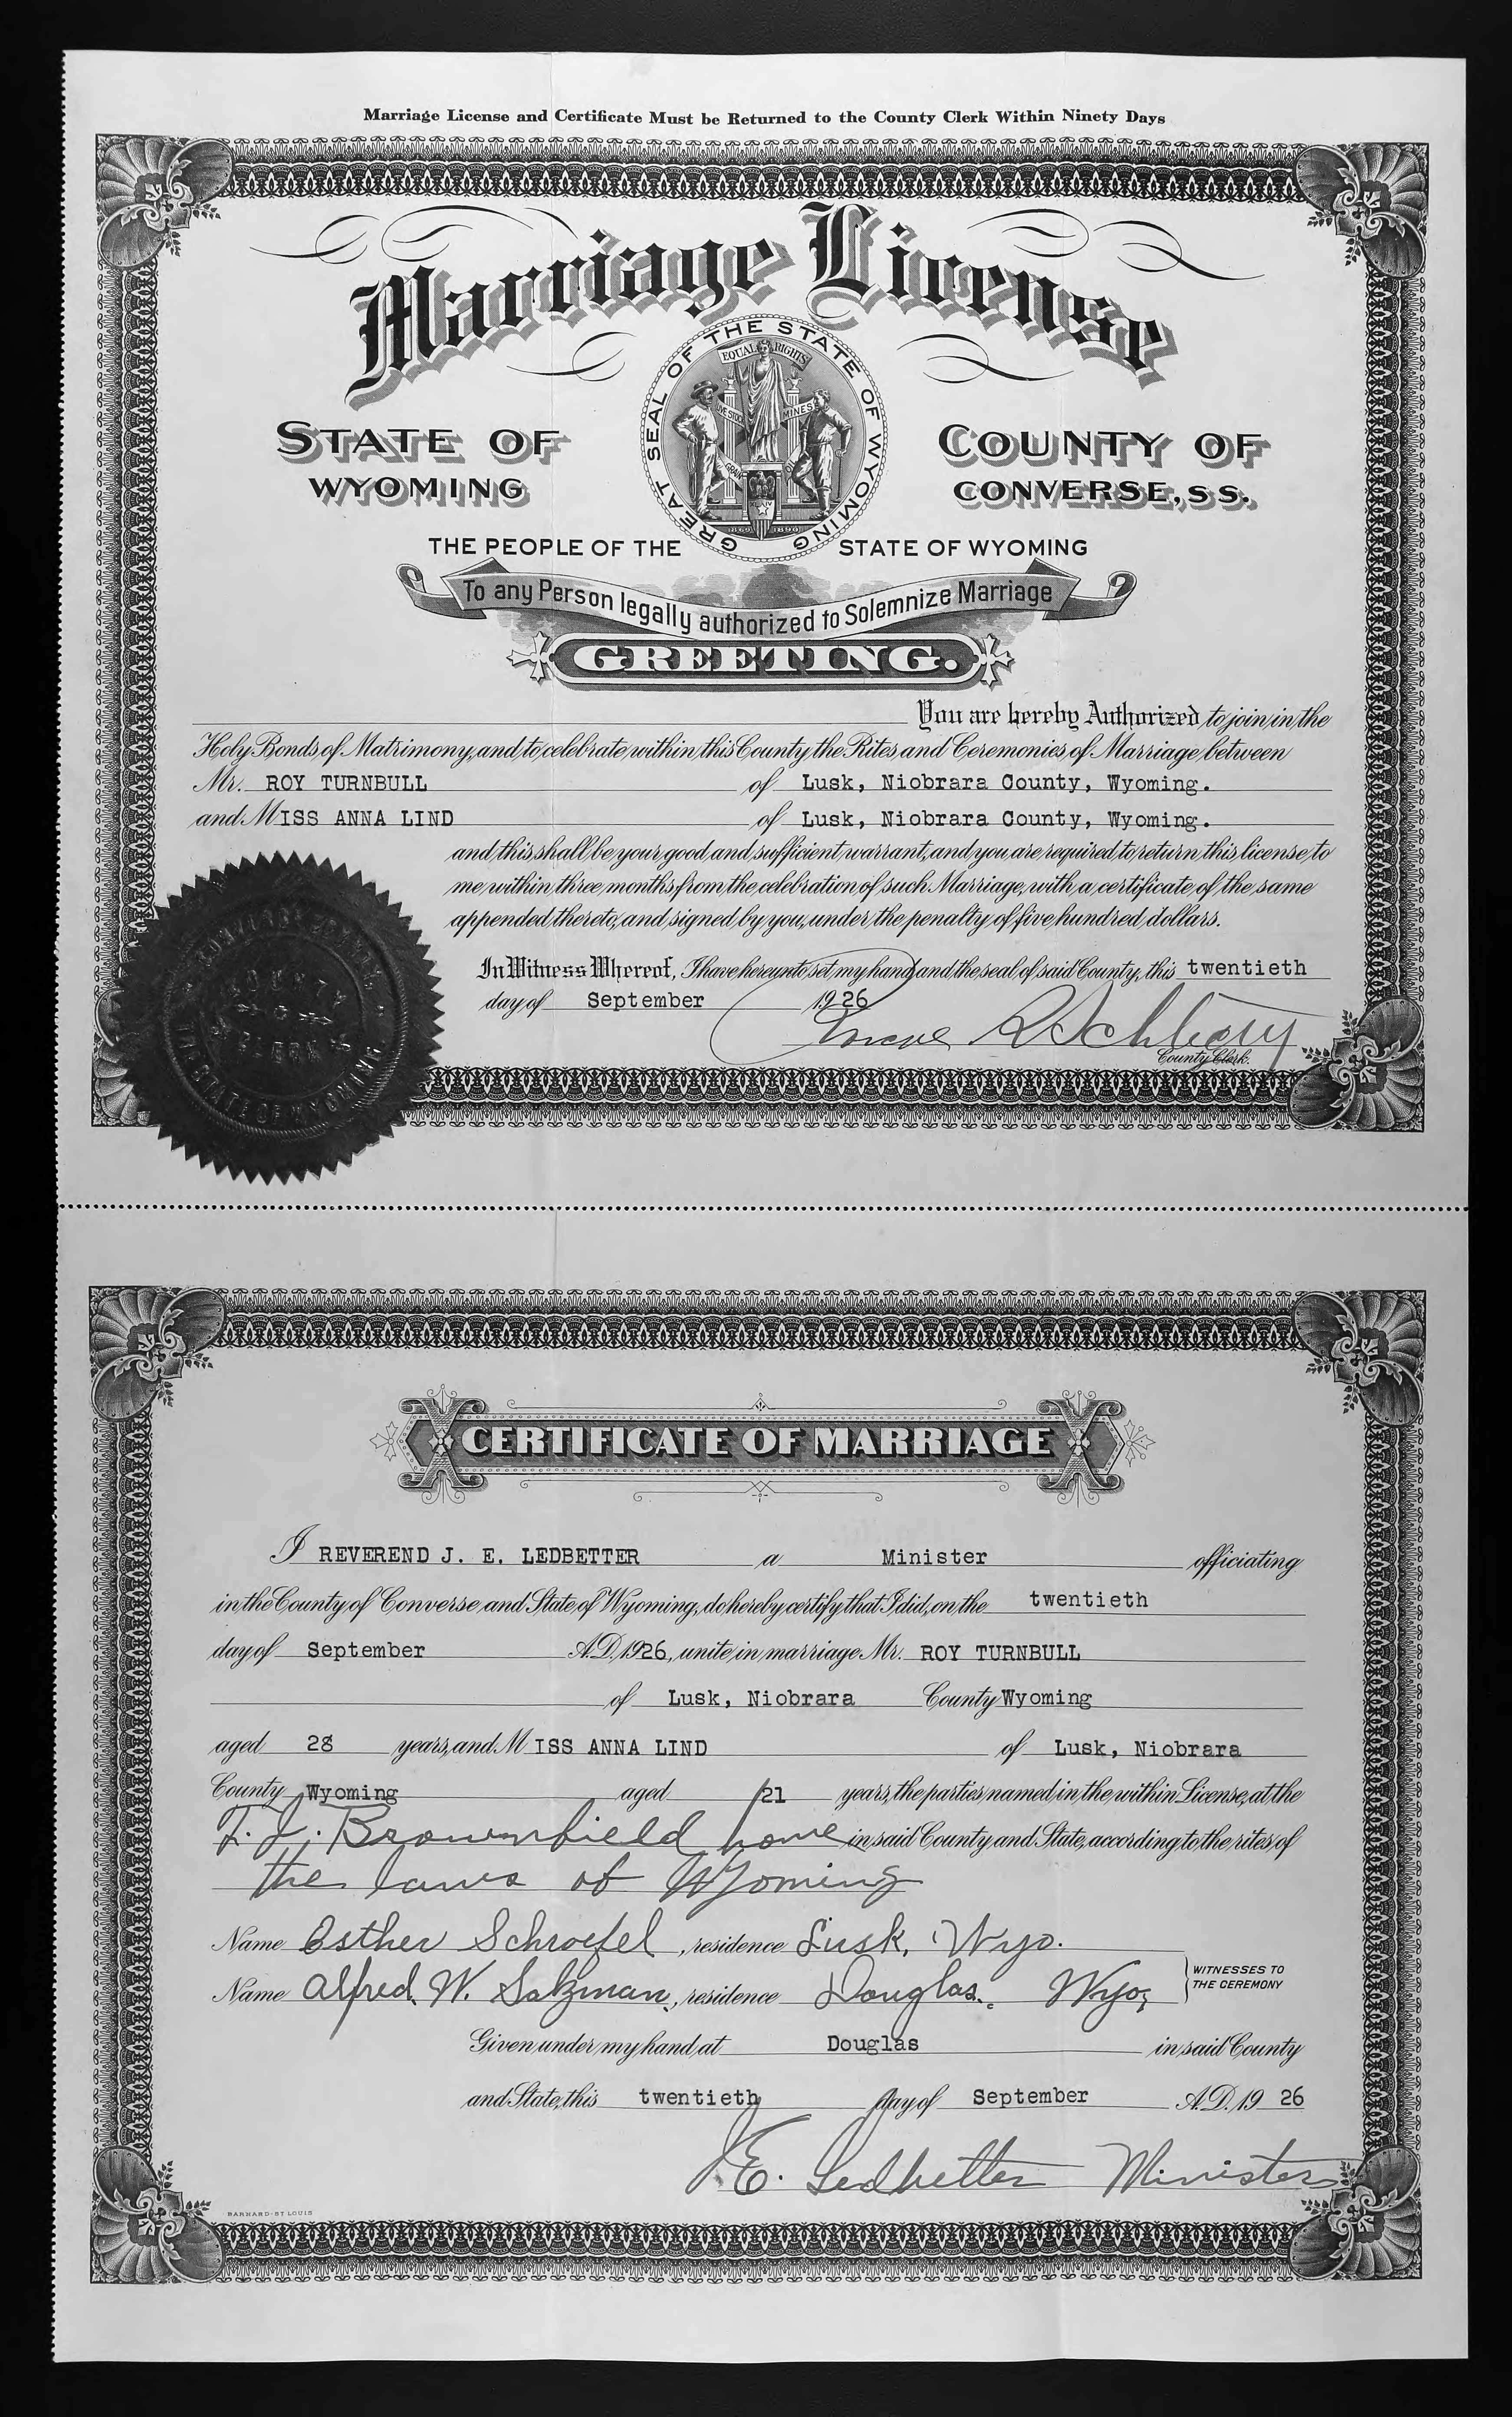 Marriage License and Certificate Must be Returned to the County Clerk Within Ninety Days
Marriage License
GREAT SEAL OF THE STATE OF WYOMING
EQUAL RIGHTS
LIVESTOCK MINES
GRAIN OIL
1869 1890
STATE OF WYOMING
COUNTY OF CONVERSE, SS.
THE PEOPLE OF THE STATE OF WYOMING
To any Person legally authorized to Solemnize Marriage
GREETING.
You are hereby Authorized to join in the
Holy Bonds of Matrimony, and to celebrate within this County the Rites and Ceremonies of Marriage between
Mr. ROY TURNBULL of Lusk, Niobrara County, Wyoming.
and MISS ANNA LIND of Lusk, Niobrara County, Wyoming.
and this shall be your good and sufficient warrant, and you are required to return this license to
me within three months from the celebration of such Marriage, with a certificate of the same
appended thereto, and signed by you, under the penalty of five hundred dollars.
In Witness Whereof, I have hereunto set my hand and the seal of said County, this twentieth
day of September 1926
County Clerk.
COUNTY CLERK
THE STATE OF WYOMING
CERTIFICATE OF MARRIAGE
I REVEREND J. E. LEDBETTER a Minister officiating
in the County of Converse and State of Wyoming, do hereby certify that I did, on the twentieth
day of September A.D. 1926, unite in marriage Mr. ROY TURNBULL
of Lusk, Niobrara County Wyoming
aged 28 years, and MISS ANNA LIND of Lusk, Niobrara
County Wyoming aged 21 years, the parties named in the within License, at the
Brownfield home in said County and State, according to the rites of
the laws of Wyoming
Name Esther Schroefel, residence Lusk, Wyo.
Name Alfred W. Salzman, residence Douglas, Wyo,
WITNESSES TO
THE CEREMONY
Given under my hand at Douglas in said County
and State, this twentieth day of September A.D. 19 26
J.E. Ledbetter Minister
BARNARD-ST LOUIS